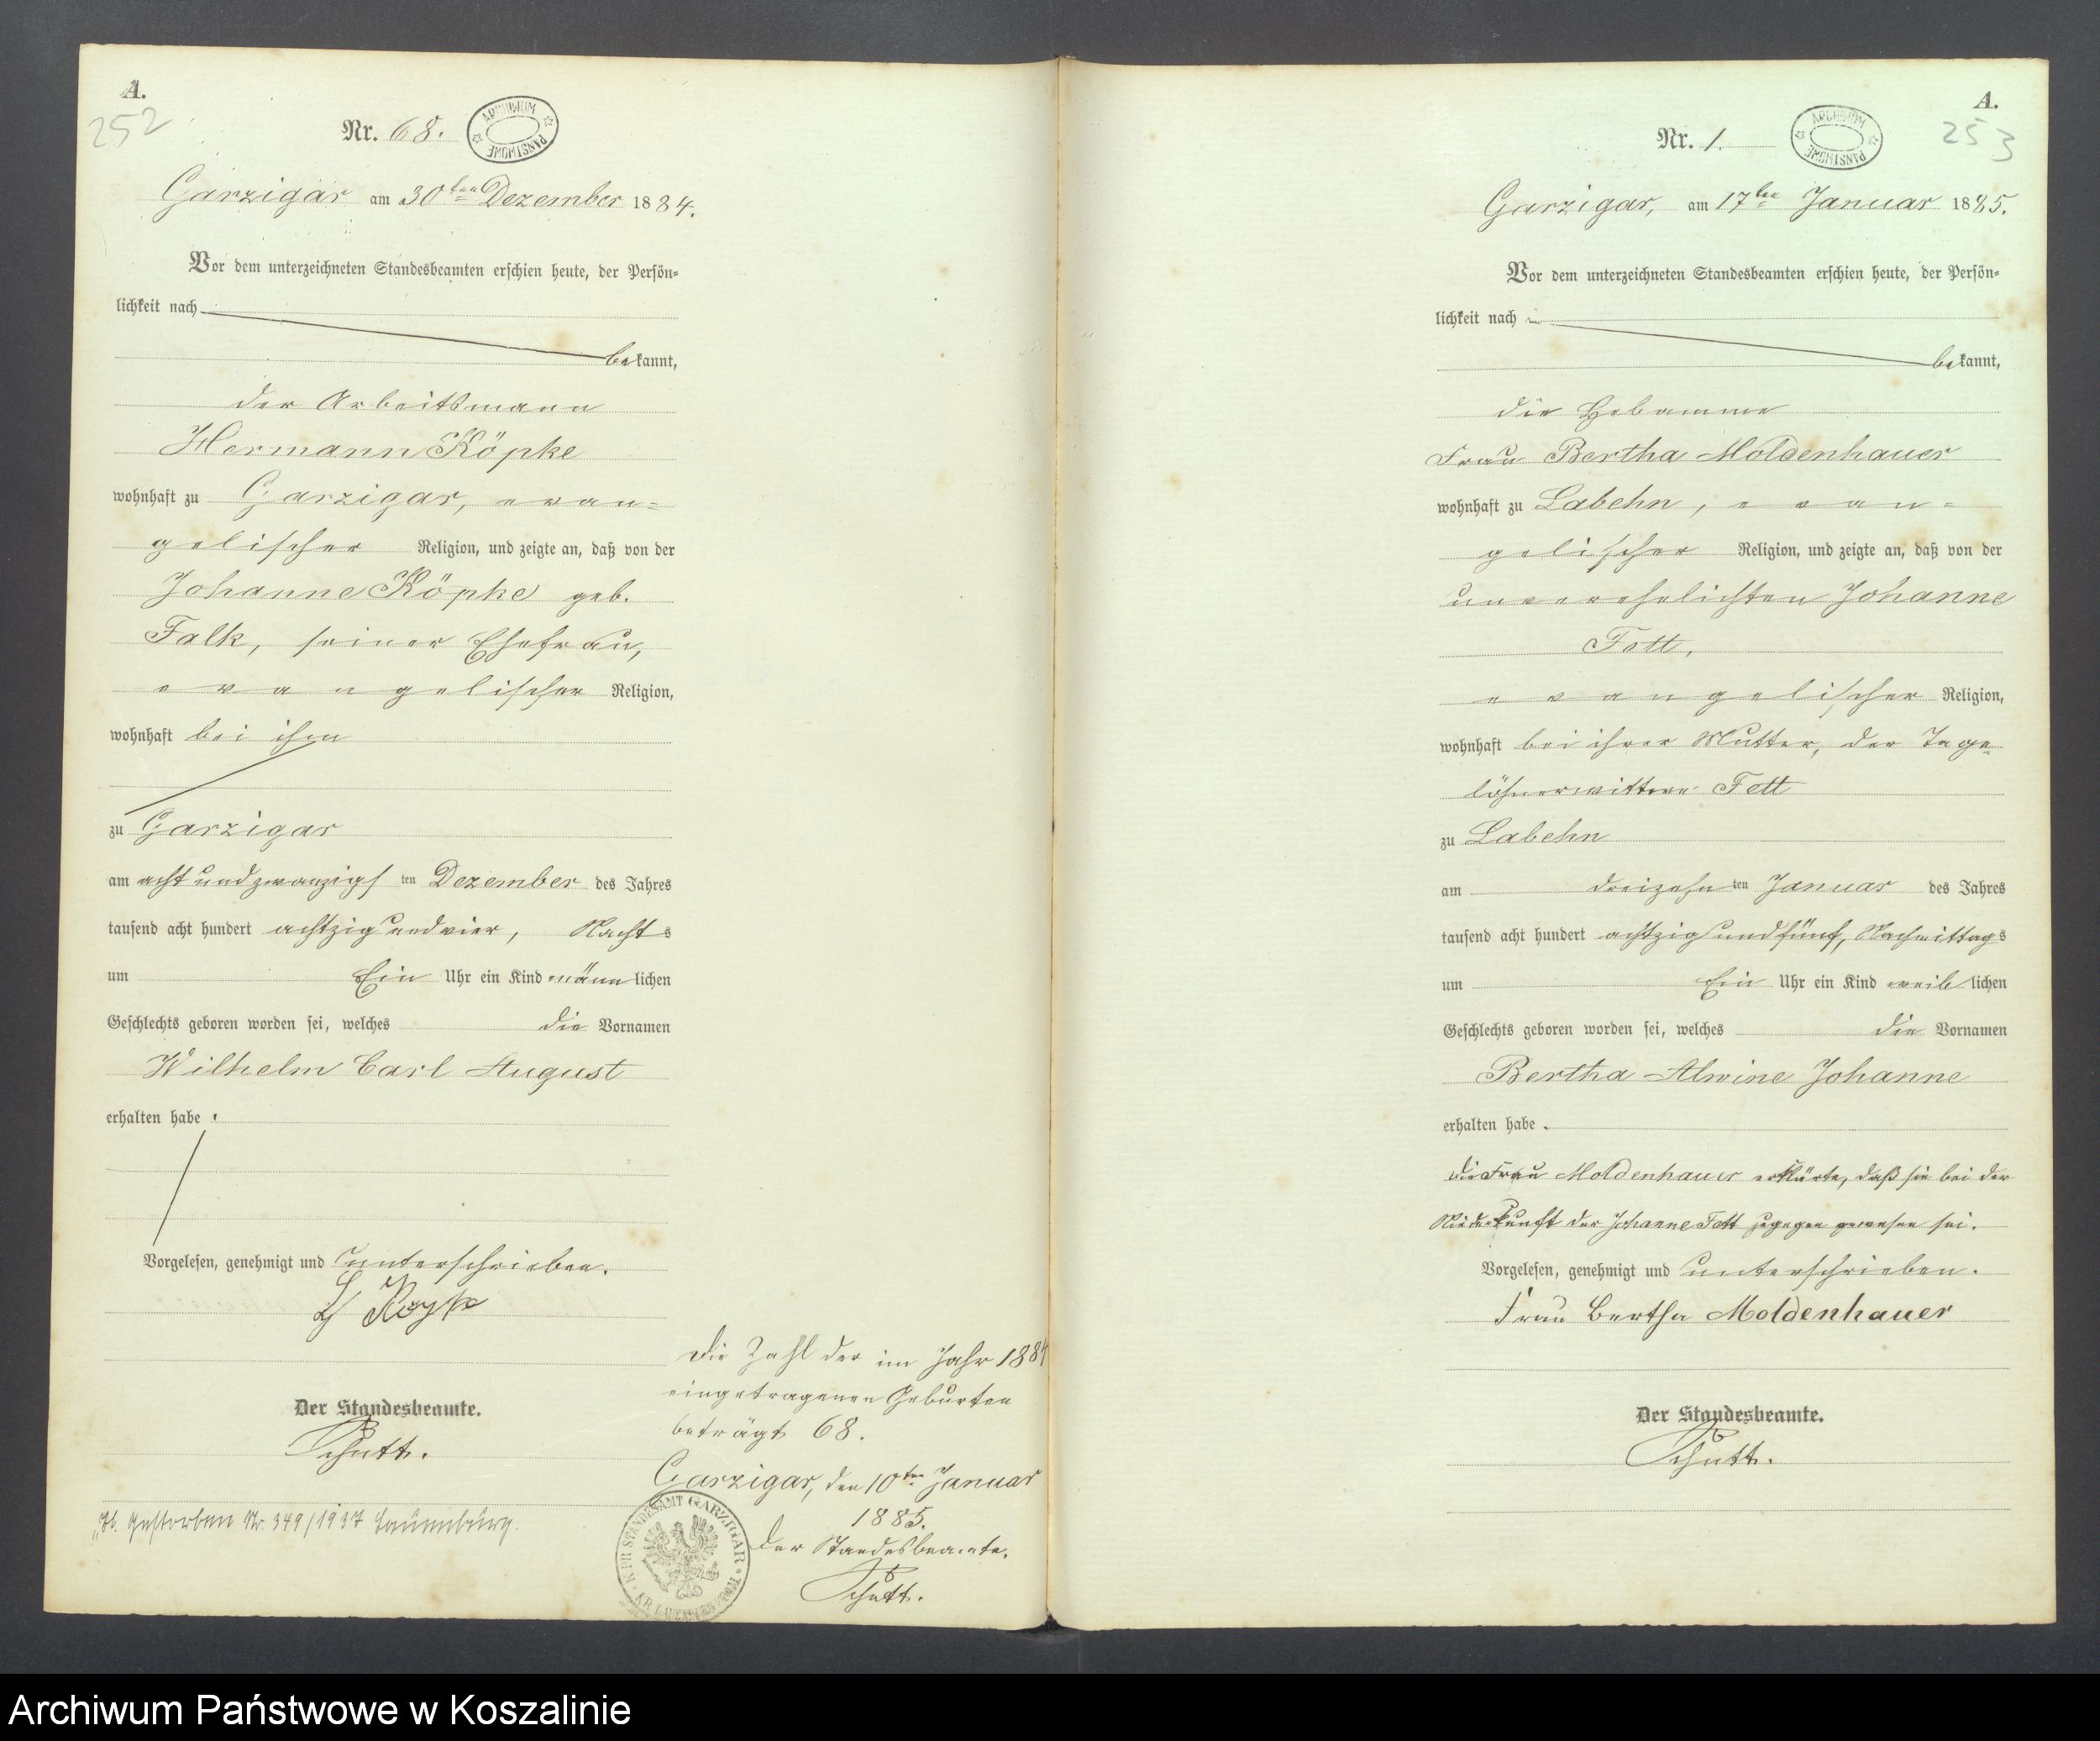 A.
252
Nr. 68.
ARCHIWUM PAŃSTWOWE
Garzigar am 30ten Dezember 1884.
Vor dem unterzeichneten Standesbeamten erschien heute, der Persön=
lichkeit nach
bekannt,
der Arbeitsmann
Hermann Köpke
wohnhaft zu Garzigar, evan=
gelischer Religion, und zeigte an, daß von der
Johanne Köpke geb.
Falk, seiner Ehefrau,
evangelischer Religion,
wohnhaft bei ihm
zu Garzigar
am acht und zwanzigsten Dezember des Jahres
tausend acht hundert achtzig und vier, Nachts
um Ein Uhr ein Kind männlichen
Geschlechts geboren worden sei, welches die Vornamen
Wilhelm Carl August
erhalten habe.
Vorgelesen, genehmigt und unterschrieben.
Der Standesbeamte.
Schutt.
Gestorben Nr. 349/1937 Lauenburg.
Die Zahl der im Jahr 1884
eingetragenen Geburten
beträgt 68.
Garzigar, den 10ten Januar
1885.
Der Standesbeamte.
Schutt.
A.
253
Nr. 1.
ARCHIWUM PAŃSTWOWE
Garzigar, am 17ten Januar 1885.
Vor dem unterzeichneten Standesbeamten erschien heute, der Persön=
lichkeit nach
bekannt,
die Hebamme
Frau Bertha Moldenhauer
wohnhaft zu Labehn, evan=
gelischer Religion, und zeigte an, daß von der
unverehelichten Johanne
Fett,
evangelischer Religion,
wohnhaft bei ihrer Mutter, der Tage=
löhnerwittwe Fett
zu Labehn
am dreizehnten Januar des Jahres
tausend acht hundert achtzig und fünf, Nachmittags
um Ein Uhr ein Kind weiblichen
Geschlechts geboren worden sei, welches die Vornamen
Bertha Alwine Johanne
erhalten habe.
Die Frau Moldenhauer erklärte, daß sie bei der
Niederkunft der Johanne Fett zugegen gewesen sei.
Vorgelesen, genehmigt und unterschrieben.
Frau Bertha Moldenhauer
Der Standesbeamte.
Schutt.
Archiwum Państwowe w Koszalinie